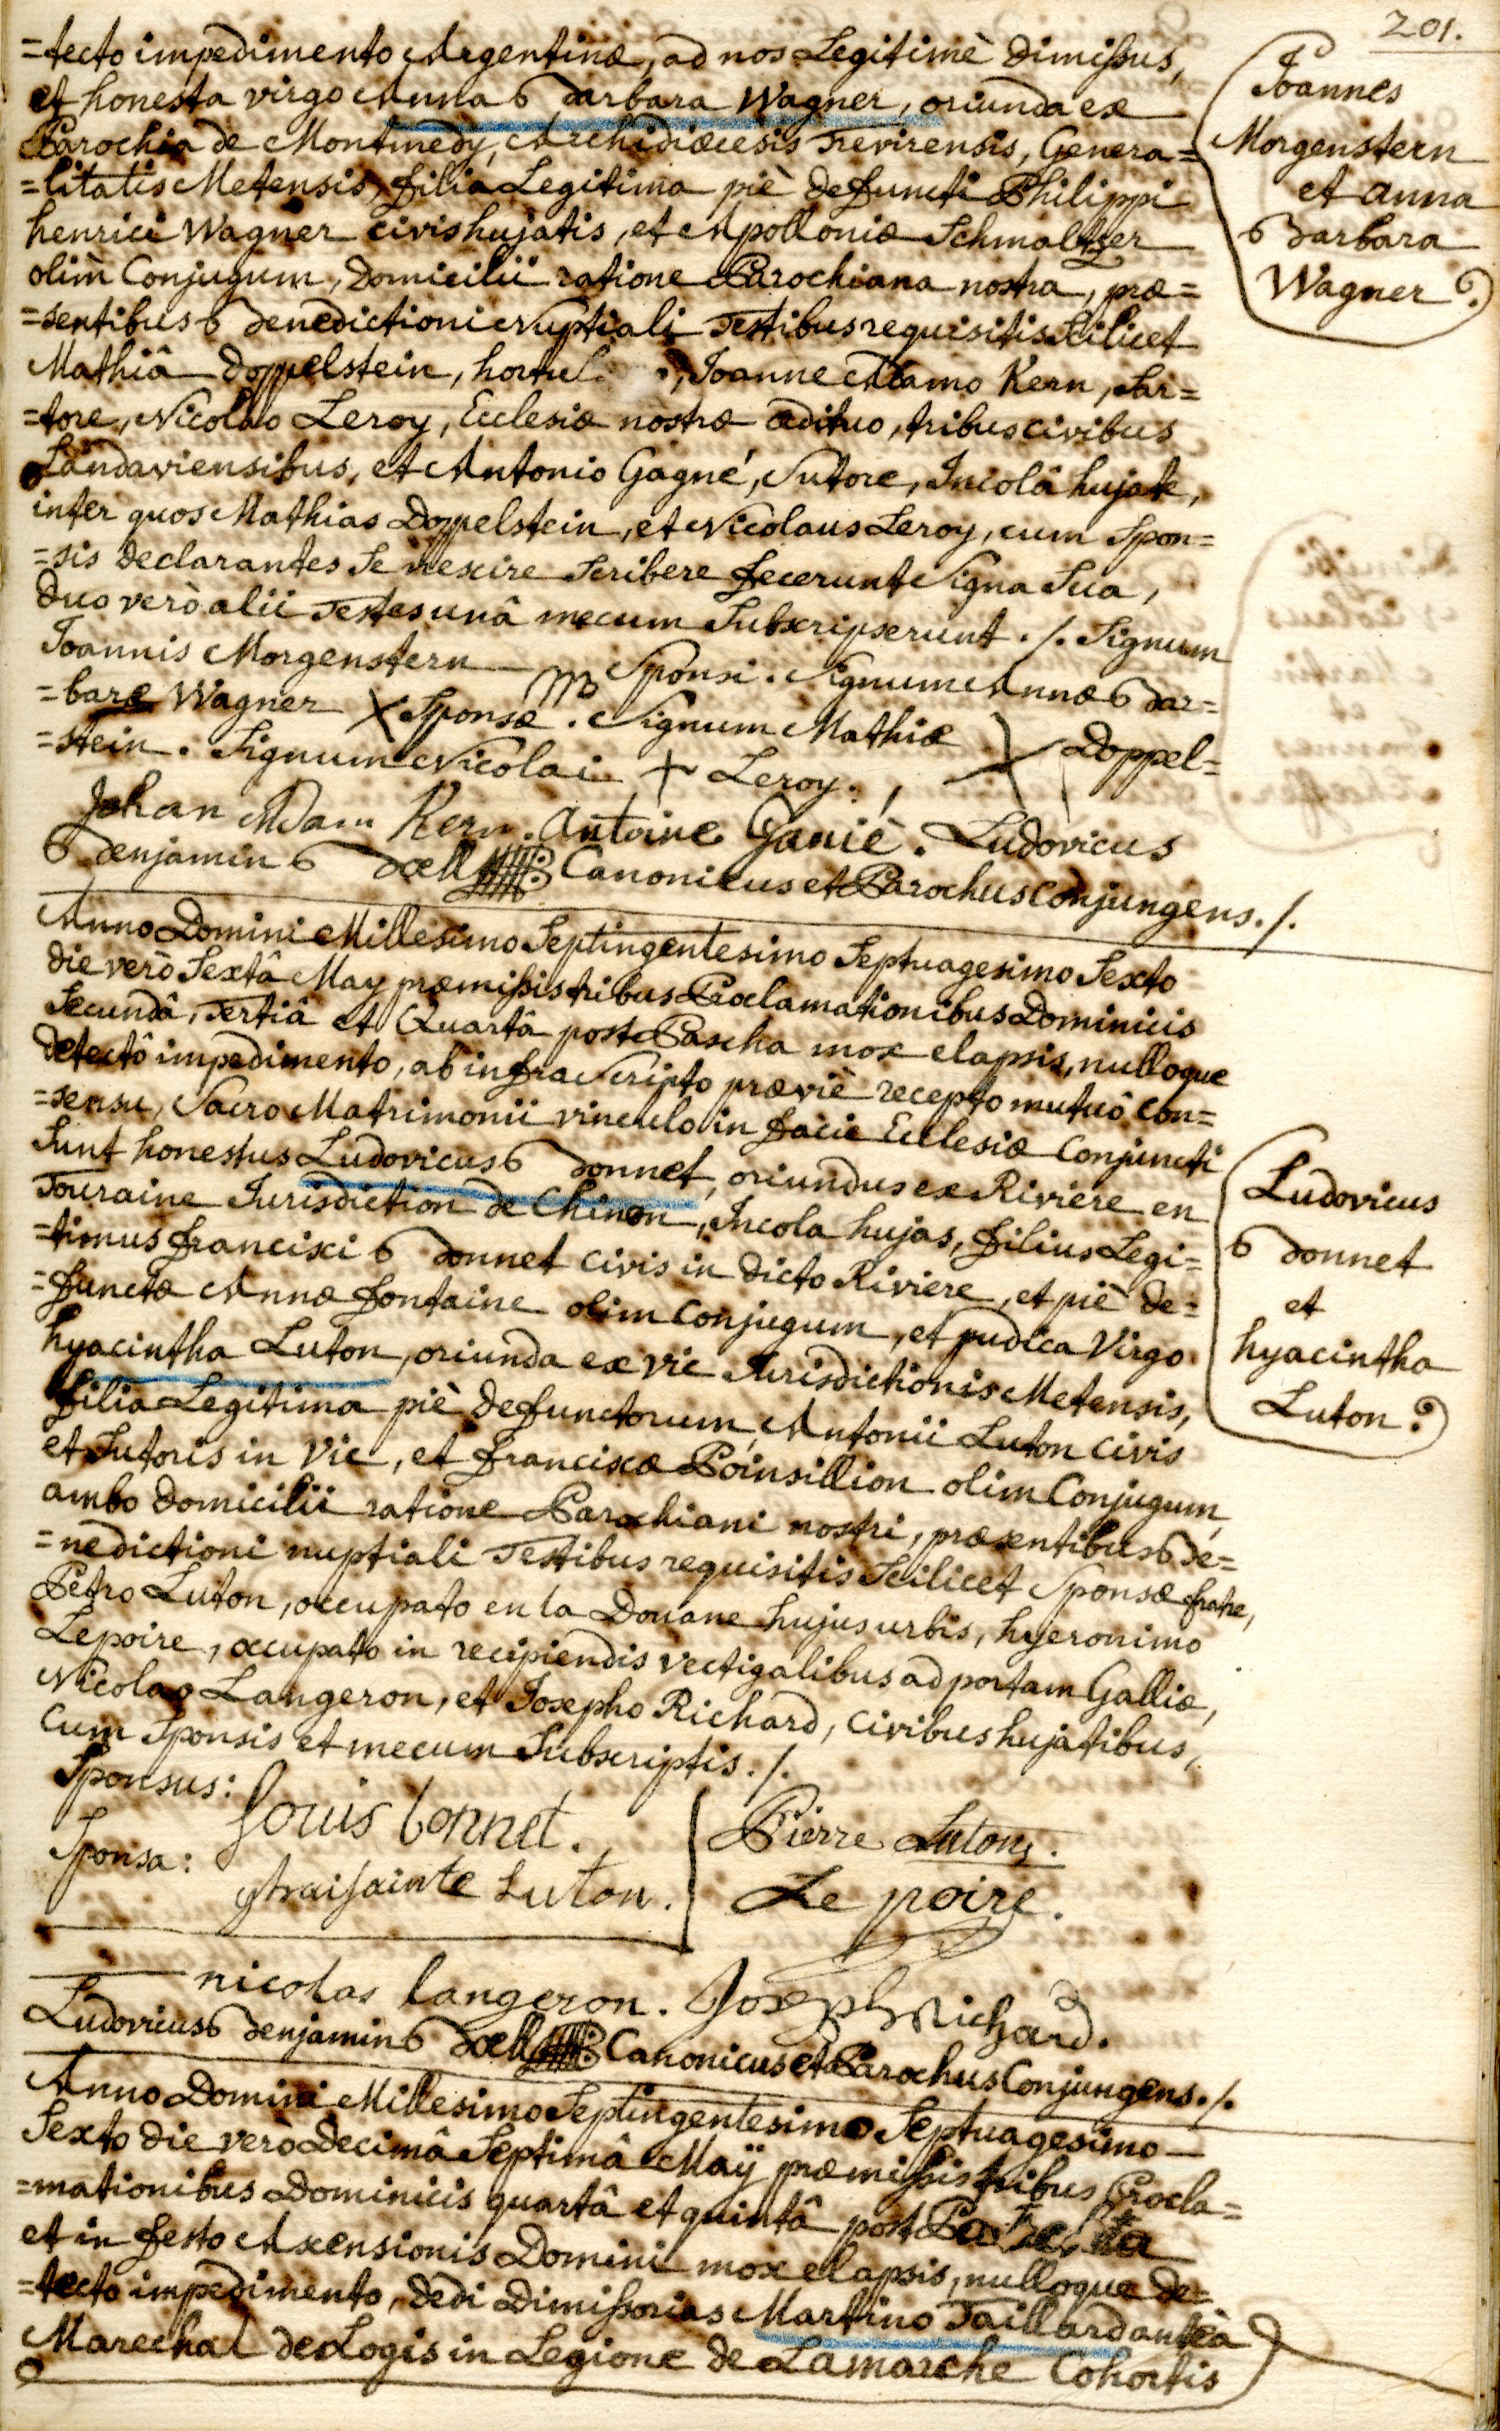 201.
=tecto impedimento Argentinæ, ad nos Legitimè dimissus,
et honesta virgo Anna Barbara Wagner, oriunda ex
Parochia de Montmedy, Archidiœcesis Trevirensis, Genera=
=litatis Metensis, filia Legitima piè defuncti Philippi
henrici Wagner civis hujatis, et Apolloniæ Schmaltzer
olim Conjugum, Domicilii ratione Parochiana nostra, præ=
=sentibus Benedictioni Nuptiali Testibus requisitis Scilicet
Mathiâ Doppelstein, , Joanne Adamo Kern, Sar=
=tore, Nicolao Leroy, Ecclesiæ nostræ ædituo, tribus civibus
Landaviensibus, et Antonio Gagné, Sutore, Incolâ hujate,
inter quos Mathias Doppelstein, et Nicolaus Leroy, cum Spon=
=sis declarantes Se nescire Scribere fecerunt Signa Sua,
duo verò alii Testes unâ mecum Subscripserunt ./. Signum
Joannis Morgenstern Sponsi. Signum Annæ Bar=
=baræ Wagner X Sponsæ. Signum Mathiæ X Doppel=
=stein. Signum Nicolai + Leroy.
Johan Adam Kern. Antoine Ganiè. Ludovicus
Benjamin Bœll Canonicus et Parochus Conjungens ./.
Joannes
Morgenstern
et anna
Barbara
Wagner
Anno Domini Millesimo Septingentesimo Septuagesimo Sexto
die verò Sextâ May præmissis tribus Proclamationibus Dominicis
Secundâ, Tertiâ et Quartâ post Pascha mox elapsis, nulloque
detectô impedimento, ab infra Scripto præviè recepto mutuô con=
=sensu, Sacro Matrimonii vinculo in facie Ecclesiæ Conjuncti
Sunt honestus Ludovicus Bonnet, oriundus ex Riviere en
Touraine Jurisdiction de Chinon, Incola hujas, filius Legi=
=timus francisci Bonnet civis in dicto Riviere, et piè de=
=functæ Annæ fontaine olim Conjugum, et pudica Virgo
hyacintha Luton, oriunda ex vic Jurisdictionis Metensis,
filia Legitima piè defunctorum, Antonii Luton civis
et Sutoris in Vic, et franciscæ Poinsillion olim Conjugum,
ambo domicilii ratione Parochiani nostri, præsentibus Be=
=nedictioni nuptiali Testibus requisitis Scilicet Sponsæ fratre,
Petro Luton, occupato en la Douane hujus urbis, hyeronimo
Lepoire, occupato in recipiendis vectigalibus ad portam Galliæ,
Nicolao Langeron, et Josepho Richard, civibus hujatibus,
cum Sponsis et mecum Subscriptis ./.
Ludovicus
Bonnet
et
hyacintha
Luton
Sponsus: Louis bonnet.
Sponsa: Luton.
Pierre Luton.
Le poire.
nicolas langeron. Joseph Richard.
Ludovicus Benjamin Bœll Canonicus et Parochus Conjungens ./.
Anno Domini Millesimo Septingentesimo Septuagesimo
Sexto die verò Decimâ Septimâ Maÿ præmissis tribus Procla=
=mationibus Dominicis quartâ et quintâ post Pascha
et in festo Ascensionis Domini mox elapsis, nulloque de=
=tecto impedimento, dedi Dimissorias Martino Taillard anteà
Marechal des Logis in Legione de Lamarche Cohortis